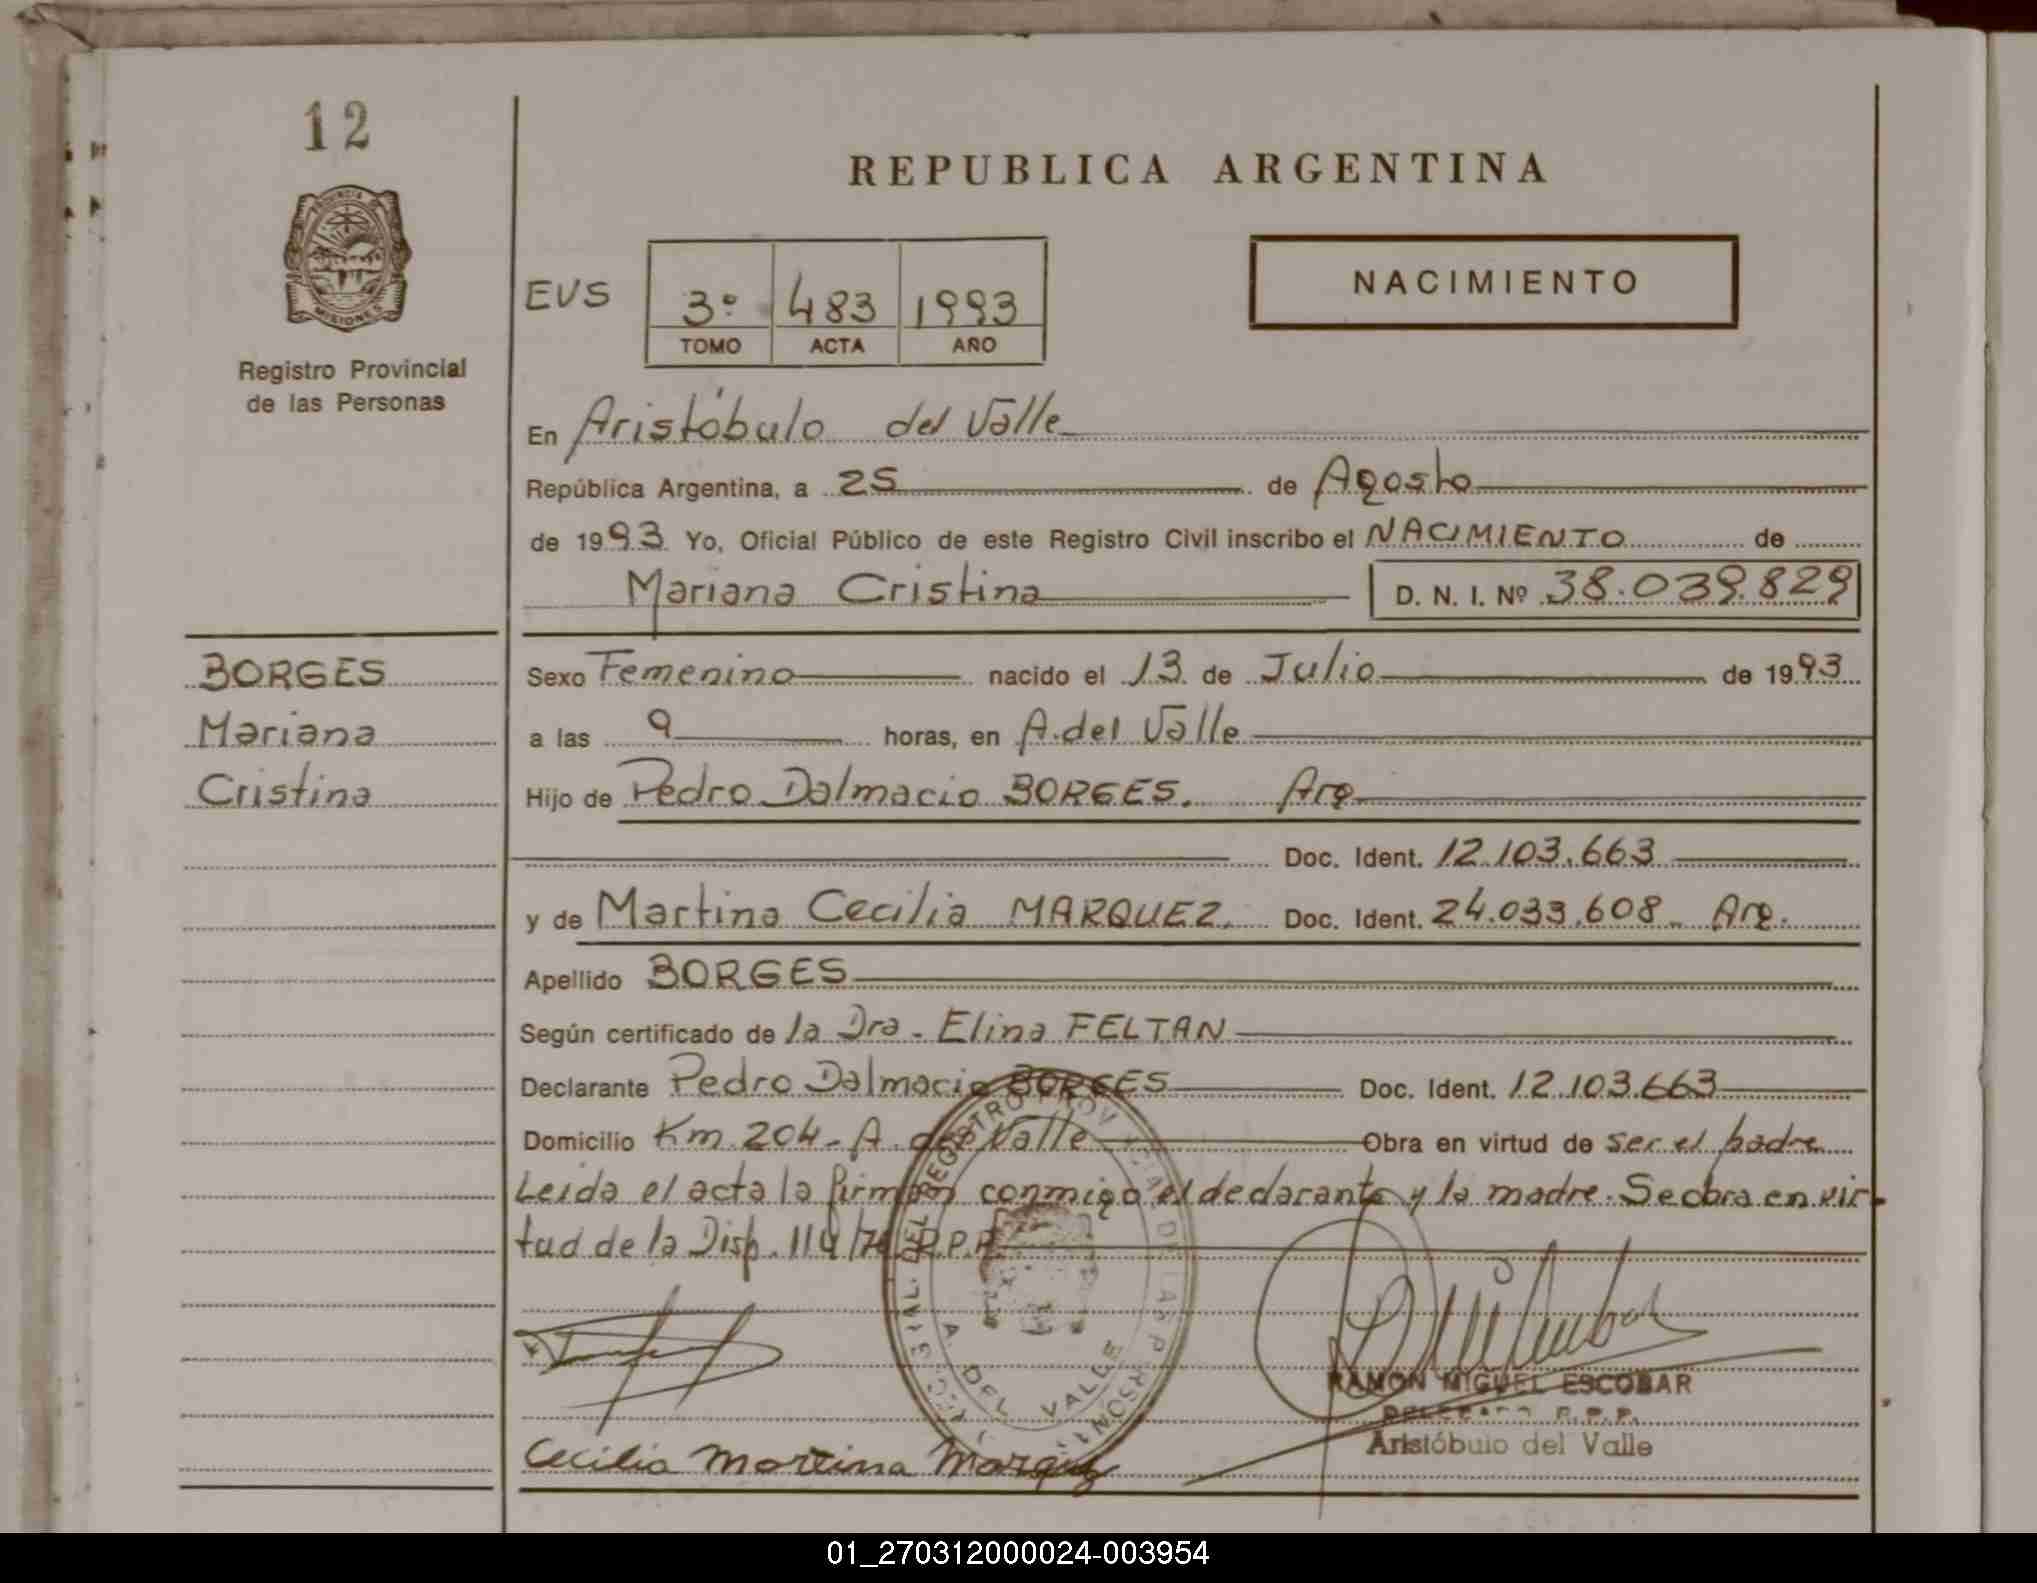 12
REPUBLICA ARGENTINA
PROVINCIA
MISIONES
Registro Provincial
de las Personas
EVS
3º 483 1993
TOMO ACTA AÑO
NACIMIENTO
En Aristóbulo del Valle
República Argentina, a 25 de Agosto
de 1993 Yo, Oficial Público de este Registro Civil inscribo el NACIMIENTO de
Mariana Cristina D. N. I. Nº 38.039.829
BORGES
Mariana
Cristina
Sexo Femenino nacido el 13 de Julio de 1993
a las 9 horas, en A. del Valle
Hijo de Pedro Dalmacio BORGES. Arg.
Doc. Ident. 12.103.663
y de Martina Cecilia MARQUEZ. Doc. Ident. 24.033.608 - Arg.
Apellido BORGES
Según certificado de la Dra. Elina FELTAN
Declarante Pedro Dalmacio BORGES Doc. Ident. 12.103.663
Domicilio Km 204 - A. del Valle Obra en virtud de ser el padre
Leida el acta la firman conmigo el declarante y la madre. Se obra en vir-
tud de la Disp. 114/76 R.P.P.
A. DEL VALLE
RAMON MIGUEL ESCOBAR
DELEGADO R.P.P.
Aristóbulo del Valle
Cecilia Martina Marquez
01_270312000024-003954